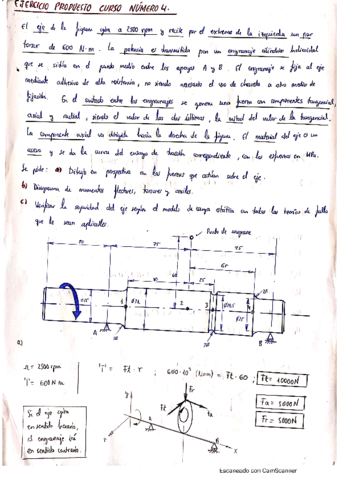 EJERCICIO PROPUESTO CURSO NÚMERO 4.
El eje de la figura gira a 2500 rpm y recibe por el extremo de la izquierda un par
torsor de 600 N·m. La potencia es transmitida por un engranaje cilíndrico helicoidal
que se sitúa en el punto medio entre los apoyos A y B. El engranaje se fija al eje
mediante adhesivo de alta resistencia, no siendo necesario el uso de chaveta u otro medio de
fijación. En el contacto entre los engranajes se genera una fuerza con componentes tangencial,
axial y radial, siendo el valor de las dos últimas, la mitad del valor de la tangencial.
La componente axial va dirigida hacia la derecha de la figura. El material del eje es un
acero y se da la curva del ensayo de tracción correspondiente, con los esfuerzos en MPa.
Se pide: a) Dibujo en perspectiva con las fuerzas que actúan sobre el eje.
b) Diagramas de momentos flectores, torsores y axiles.
c) Verificar la capacidad del eje según el modelo de carga estática con todas las teorías de fallo
que le sean aplicables.
Punto de engrane
70
75
95
60
65
25
A
1
2
3
4
B
a)
n = 2500 rpm
T = 600 N·m
T = Ft · r ; 600·10³ (N·mm) = Ft · 60 ;
Ft = 10000N
Fa = 5000N
Fr = 5000N
Si el eje gira
en sentido horario,
el engranaje irá
en sentido contrario.
Fr
Ft
Fa
y
z
x
A
B
Escaneado con CamScanner